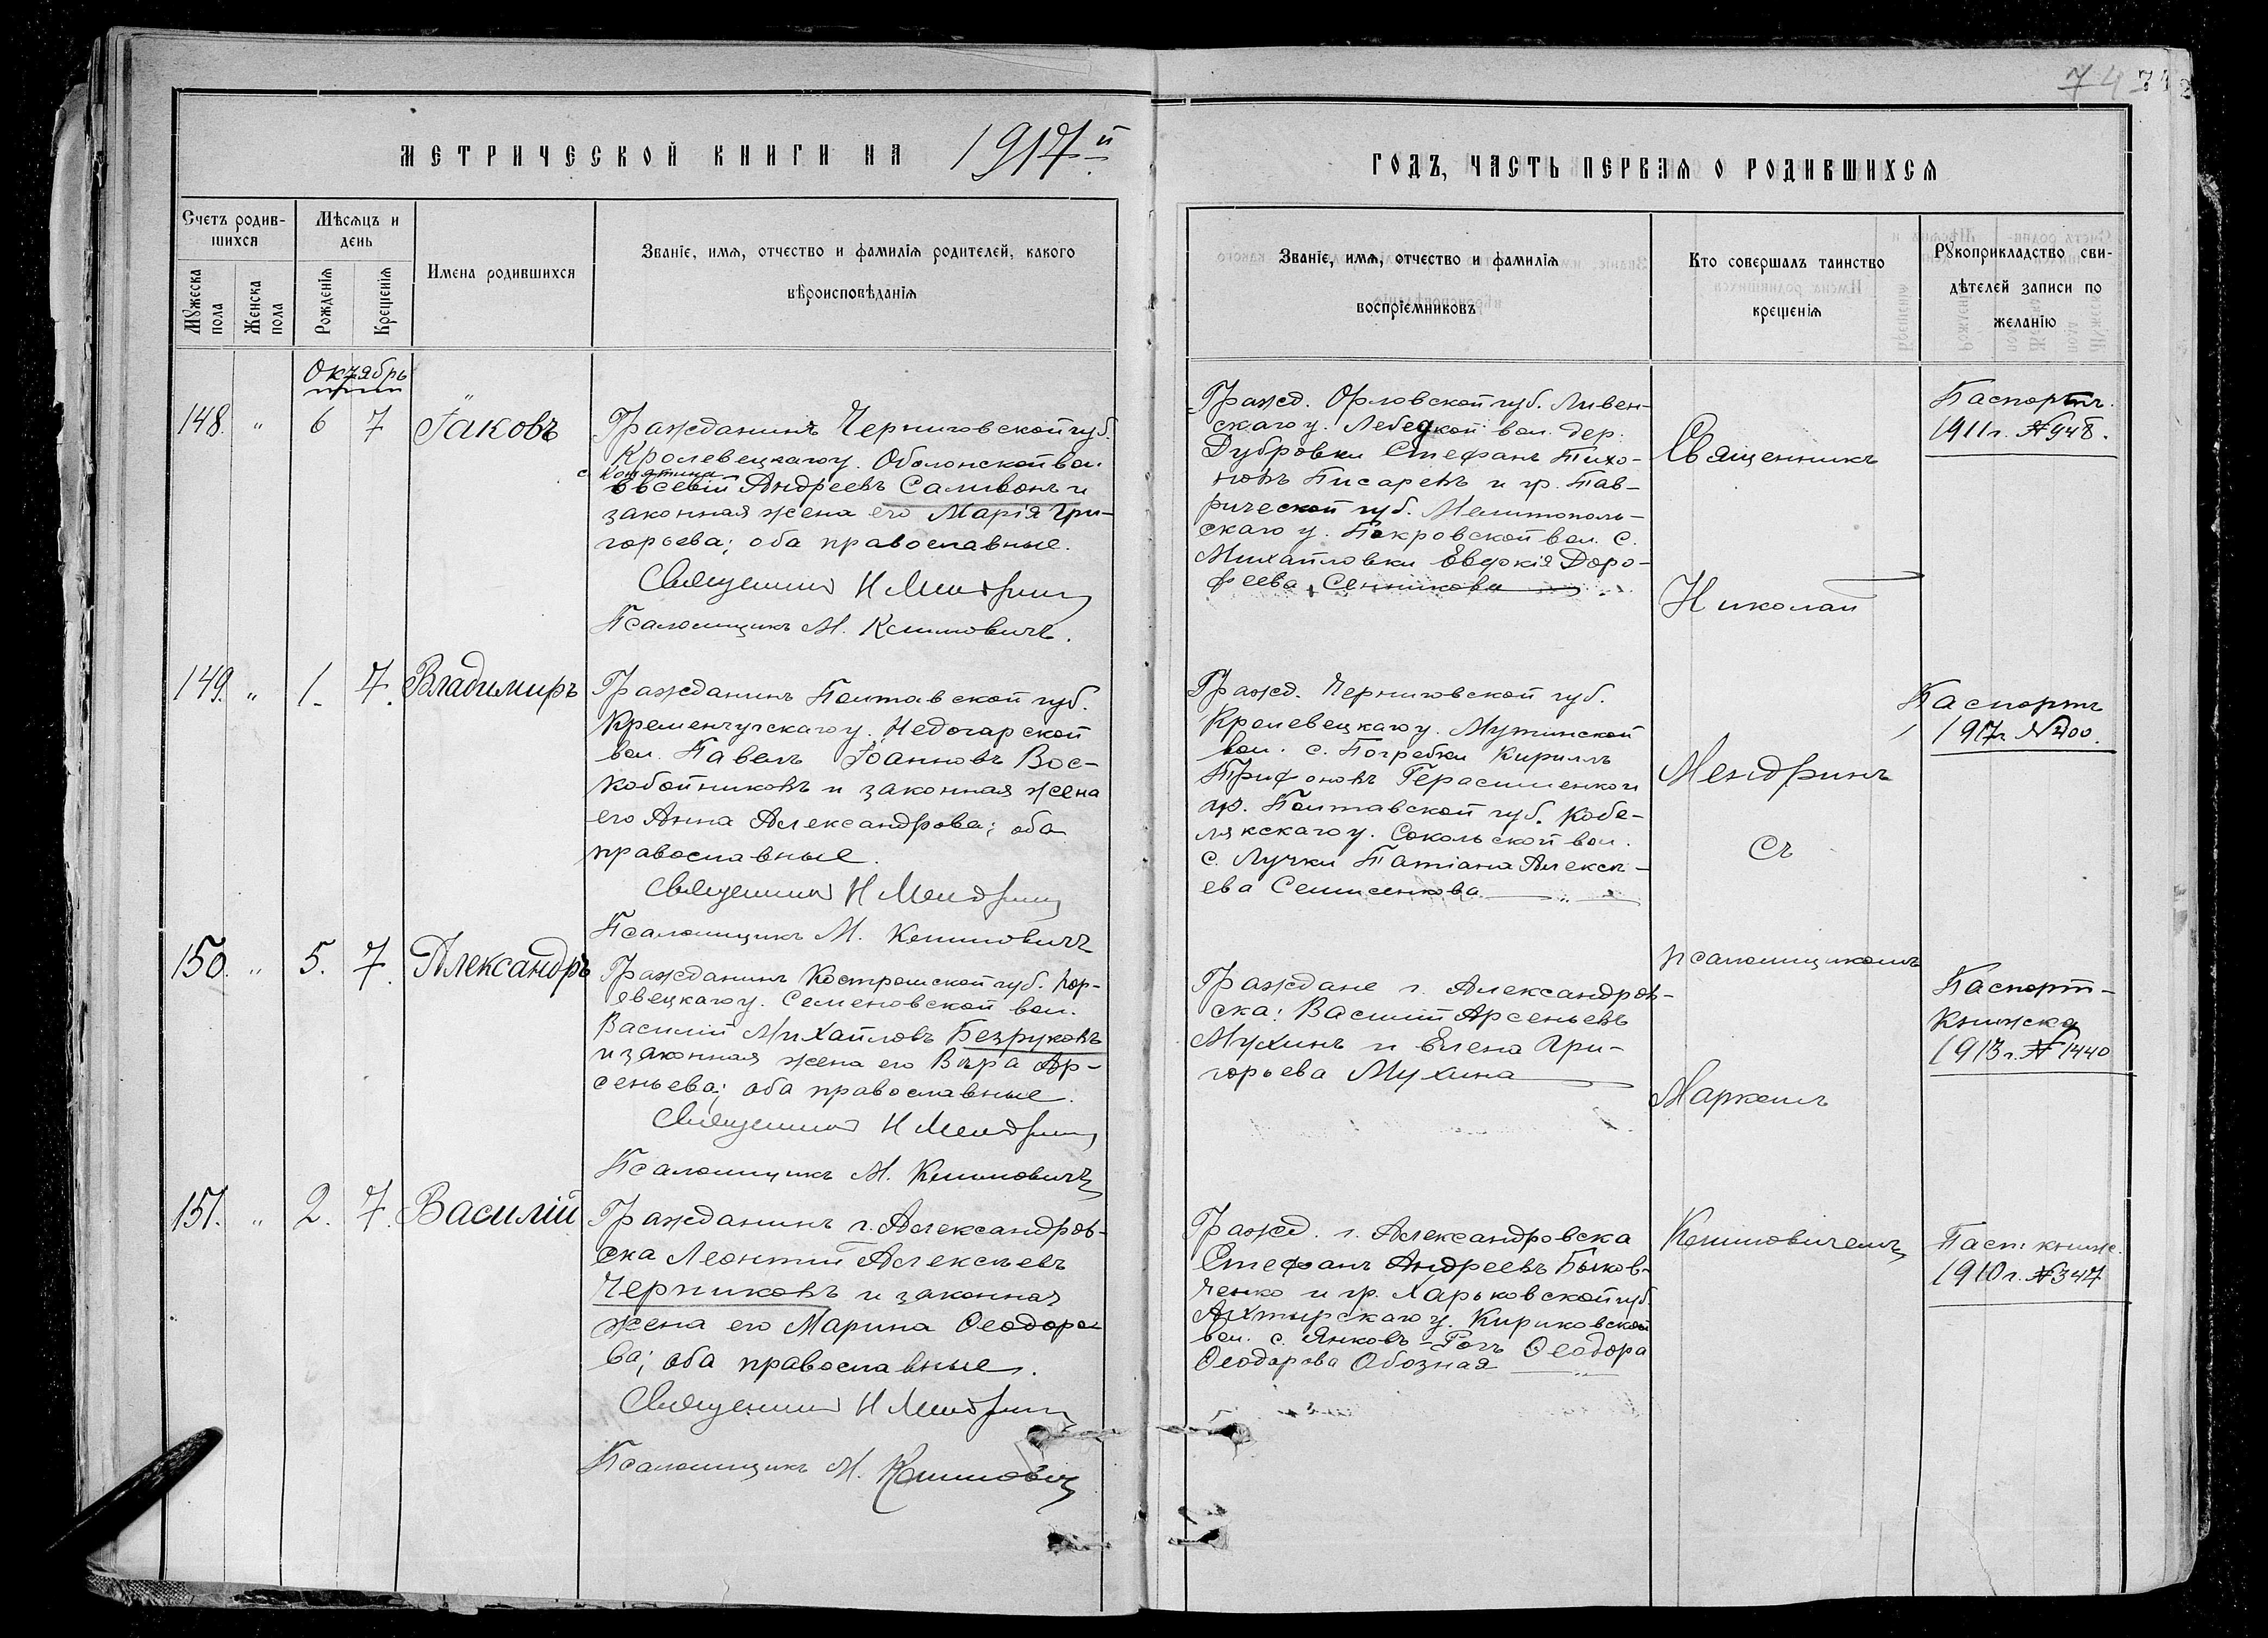 74
МЕТРИЧЕСКОЙ КНИГИ НА 1917й
ГОДЪ, ЧАСТЬ ПЕРВАЯ О РОДИВШИХСЯ
Счетъ родив-
шихся
Мѣсяцъ и
день
Мужеска
пола
Женска
пола
Рожденія
Крещенія
Имена родившихся
Званіе, имя, отчество и фамилія родителей, какого
вѣроисповѣданія
Званіе, имя, отчество и фамилія
воспріемниковъ
Кто совершалъ таинство
крещенія
Рукоприкладство сви-
дѣтелей записи по
желанію
Октябрь
148. " 6 7 Іаковъ
Гражданинъ Черниговской губ.
Кролевецкаго у. Оболонской вол.
Андреевъ Саливонъ и
законная жена его Марія Гри-
горьева; оба православные.
Священникъ Н Мендринъ
Псаломщикъ М. Климовичъ.
Гражд. Орловской губ. Ливен-
скаго у. Лебедкой вол. дер.
Дубровки Стефанъ Тихо-
новъ Писаревъ и гр. Тав-
рической губ. Мелитополь-
скаго у. Покровской вол. с.
Михайловки Евдокія Доро-
феева Сенникова
Паспортъ
1911 г. № 948.
149. " 1. 7. Владимиръ
Гражданинъ Полтавской губ.
Кременчугскаго у. Недогарской
вол. Павелъ Іоанновъ Вос-
кобойниковъ и законная жена
его Анна Александрова; оба
православные.
Священникъ Н Мендринъ
Псаломщикъ М. Климовичъ
Гражд. Черниговской губ.
Кролевецкаго у. Мутинской
вол. с. Погребки Кириллъ
Трифоновъ Герасименко и
гр. Полтавской губ. Кобе-
лякскаго у. Сокольской вол.
с. Лучки Татіана Алексѣ-
ева Семисенкова
Паспортъ
1917 г. № 200.
150. " 5. 7. Александръ
Гражданинъ Костромской губ. Юр-
евецкаго у. Семеновской вол.
Василий Михайловъ Безруковъ
и законная жена его Вѣра Ар-
сеньева; оба православные.
Священникъ Н Мендринъ
Псаломщикъ М. Климовичъ
Граждане г. Александров-
ска: Василий Арсеньевъ
Мухинъ и Елена Гри-
горьева Мухина
Паспорт-
книжка
1913 г. № 1440
151. " 2. 7. Василій
Гражданинъ г. Александров-
ска Леонтий Алексѣевъ
Черниковъ и законная
жена его Марина Ѳеодоро-
ва; оба православные.
Священникъ Н Мендринъ
Псаломщикъ М. Климовичъ
Гражд. г. Александровска
Стефанъ Андреевъ Быков-
ченко и гр. Харьковской губ.
Ахтырскаго у. Кириковской
вол. с. Янковъ-Рогъ Ѳеодора
Ѳеодорова Обозная
Пасп. книж.
1910 г. № 347
Священникъ
Николай
Мендринъ
съ
псаломщикомъ
Маркелъ
Климовичемъ